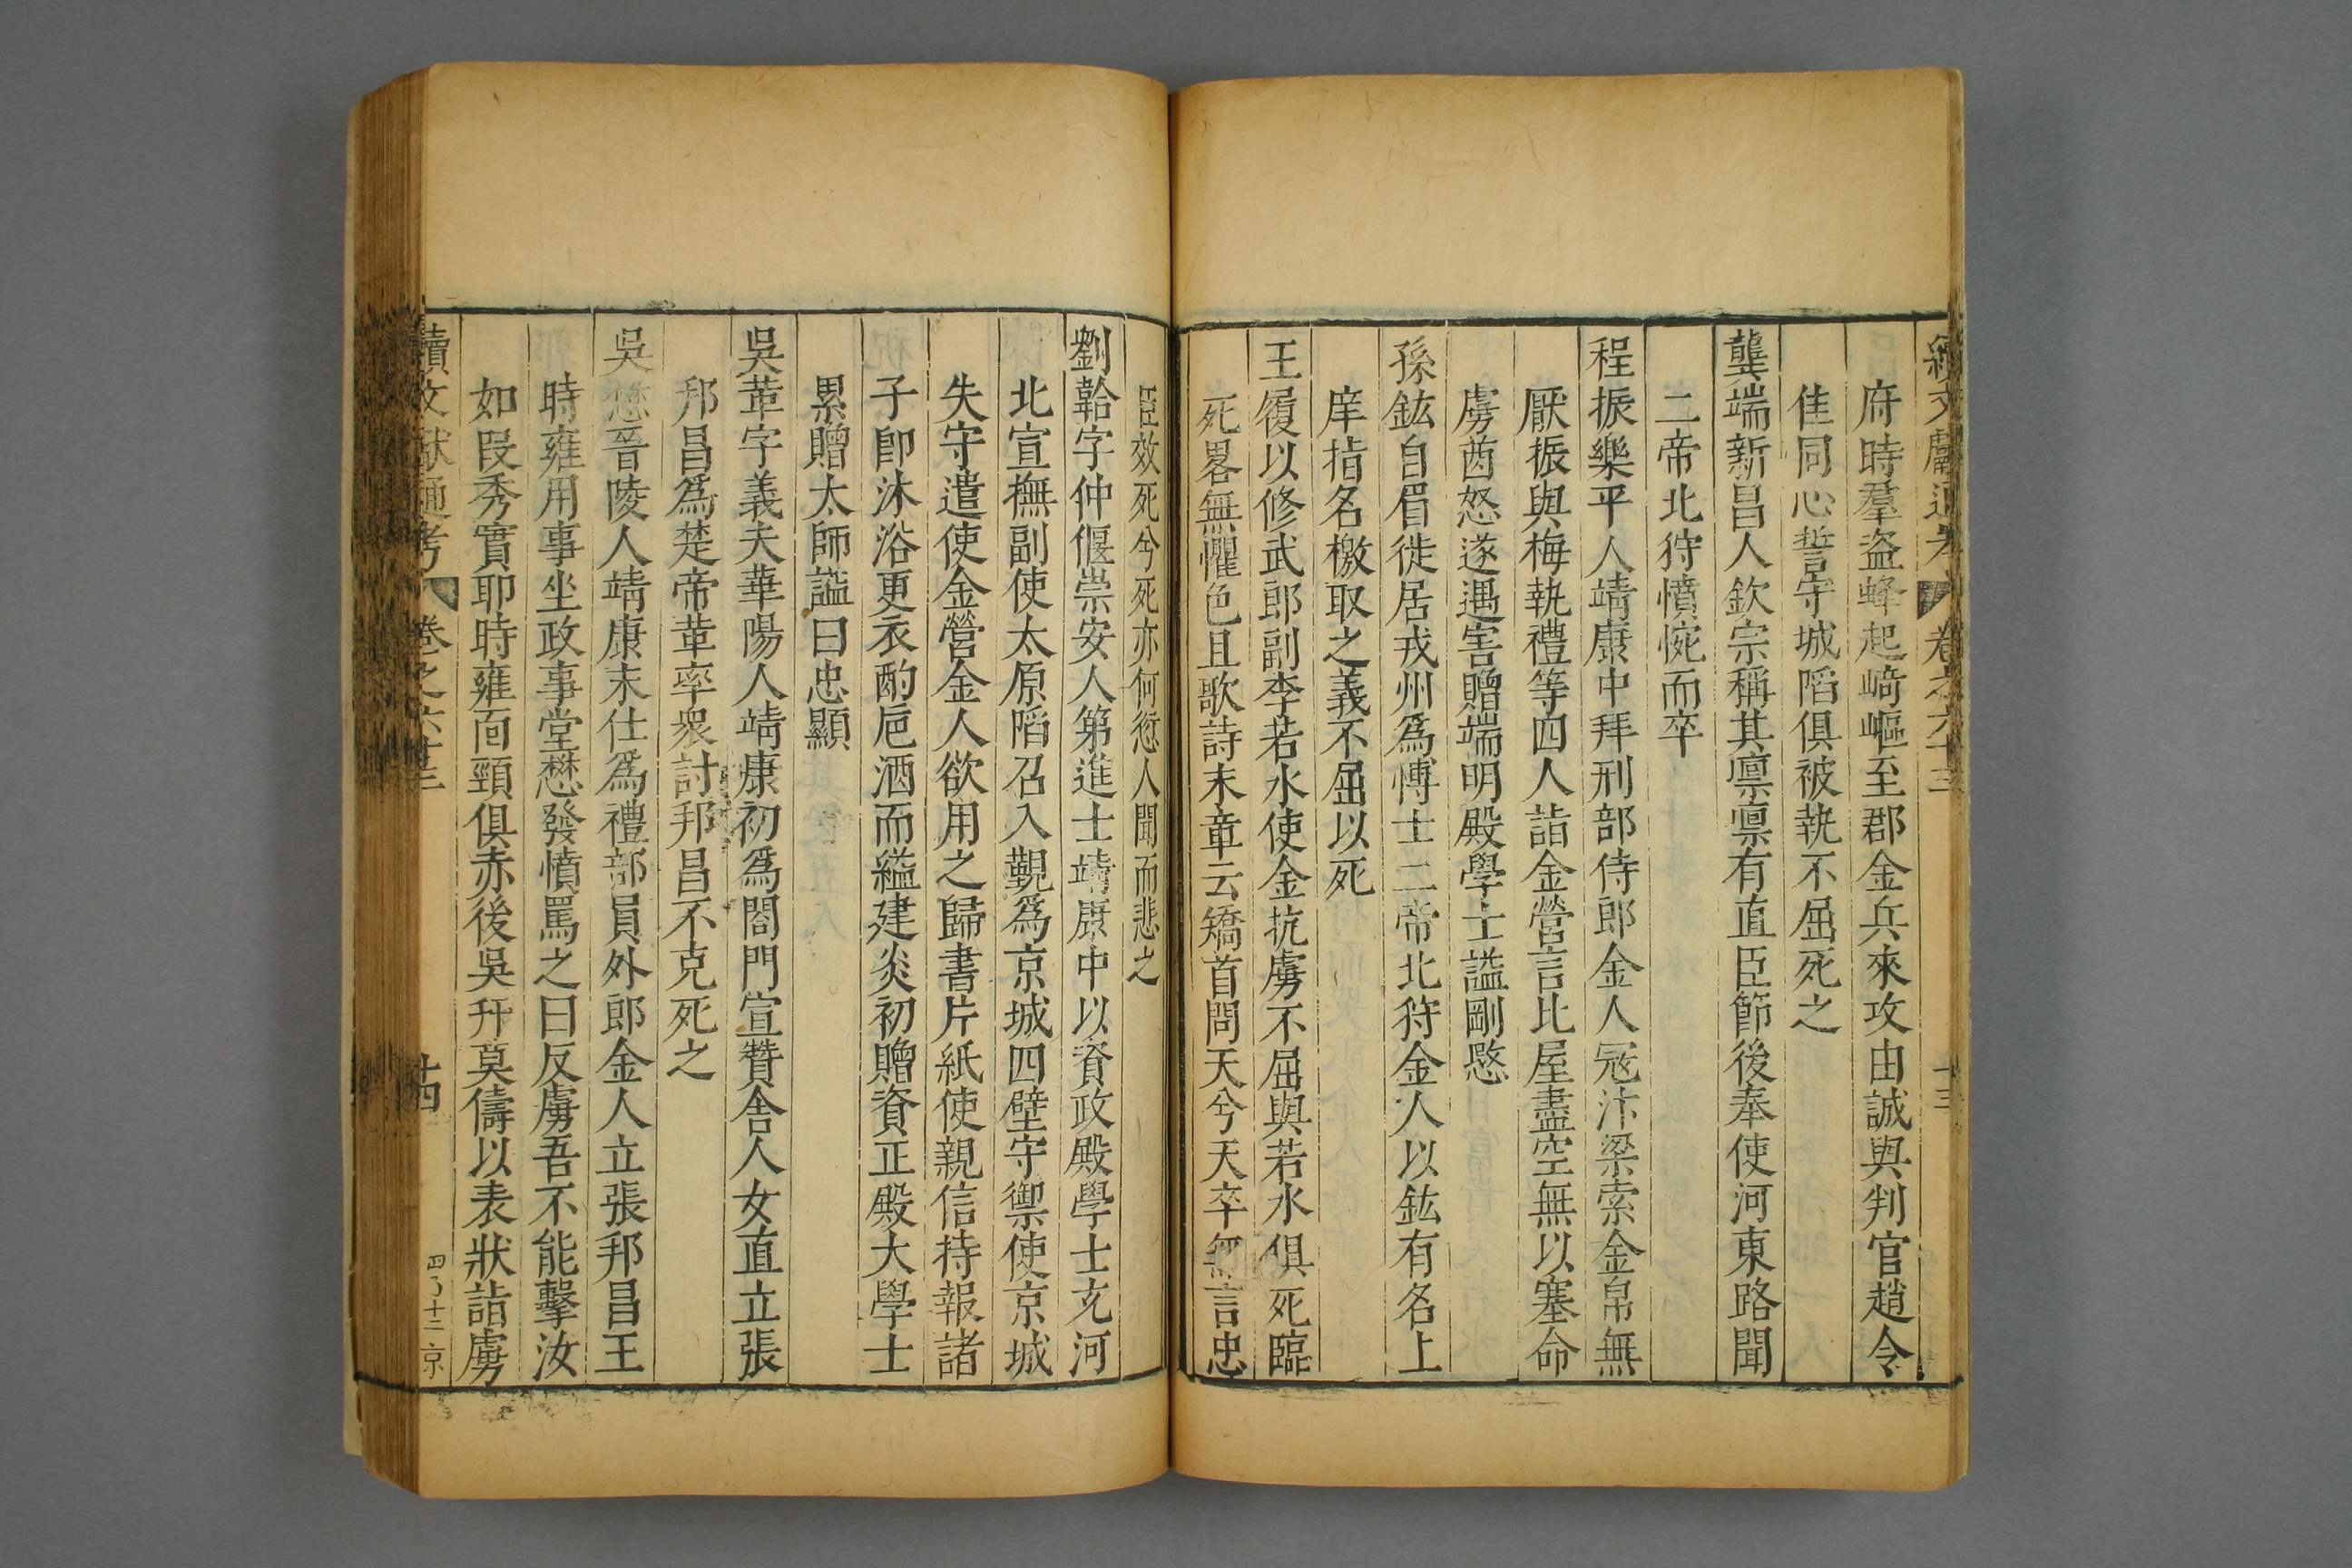 續文獻通考 卷之六十三 十三
府時羣盗蜂起崎嶇至郡金兵來攻由誠與判官趙令
佳同心誓守城陷俱被執不屈死之
龔端新昌人欽宗稱其凛凛有直臣節後奉使河東路聞
二帝北狩憤惋而卒
程振樂平人靖康中拜刑部侍郎金人冦汴梁索金帛無
厭振與梅執禮等四人詣金營言比屋盡空無以塞命
虜酋怒遂遇害贈端明殿學士謚剛愍
孫鉉自眉徙居戎州爲博士二帝北狩金人以鉉有名上
庠指名檄取之義不屈以死
王履以修武郎副李若水使金抗虜不屈與若水俱死臨
死畧無懼色且歌詩末章云矯首問天兮天卒無言忠
臣效死兮死亦何愆人聞而悲之
劉韐字仲偃崇安人第進士靖康中以資政殿學士充河
北宣撫副使太原陷召入覲爲京城四壁守禦使京城
失守遣使金營金人欲用之歸書片紙使親信持報諸
子卽沐浴更衣酌巵酒而縊建炎初贈資正殿大學士
累贈太師謚曰忠顯
吳革字義夫華陽人靖康初爲閤門宣贊舍人女直立張
邦昌爲楚帝革率衆討邦昌不克死之
吳懋晉陵人靖康末仕爲禮部員外郎金人立張邦昌王
時雍用事坐政事堂懋發憤罵之曰反虜吾不能擊汝
如段秀實耶時雍面頸俱赤後吳幵莫儔以表狀詣虜
續文獻通考 卷之六十三 十四 四百十二 京